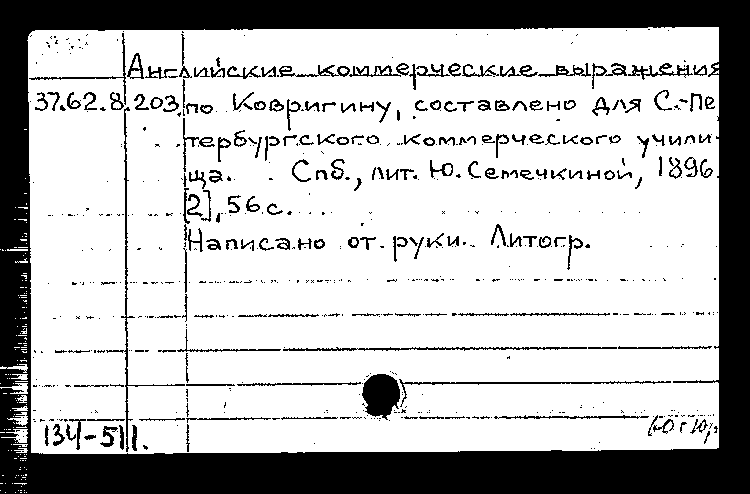 Английские коммерческие выражения
37.62.8.203. по Ковригину, составлено для С.-Пе
тербургского коммерческого учили-
ща. Спб., лит. Ю. Семечкиной, 1896.
[2], 56 с.
Написано от руки. Литогр.
134-511.